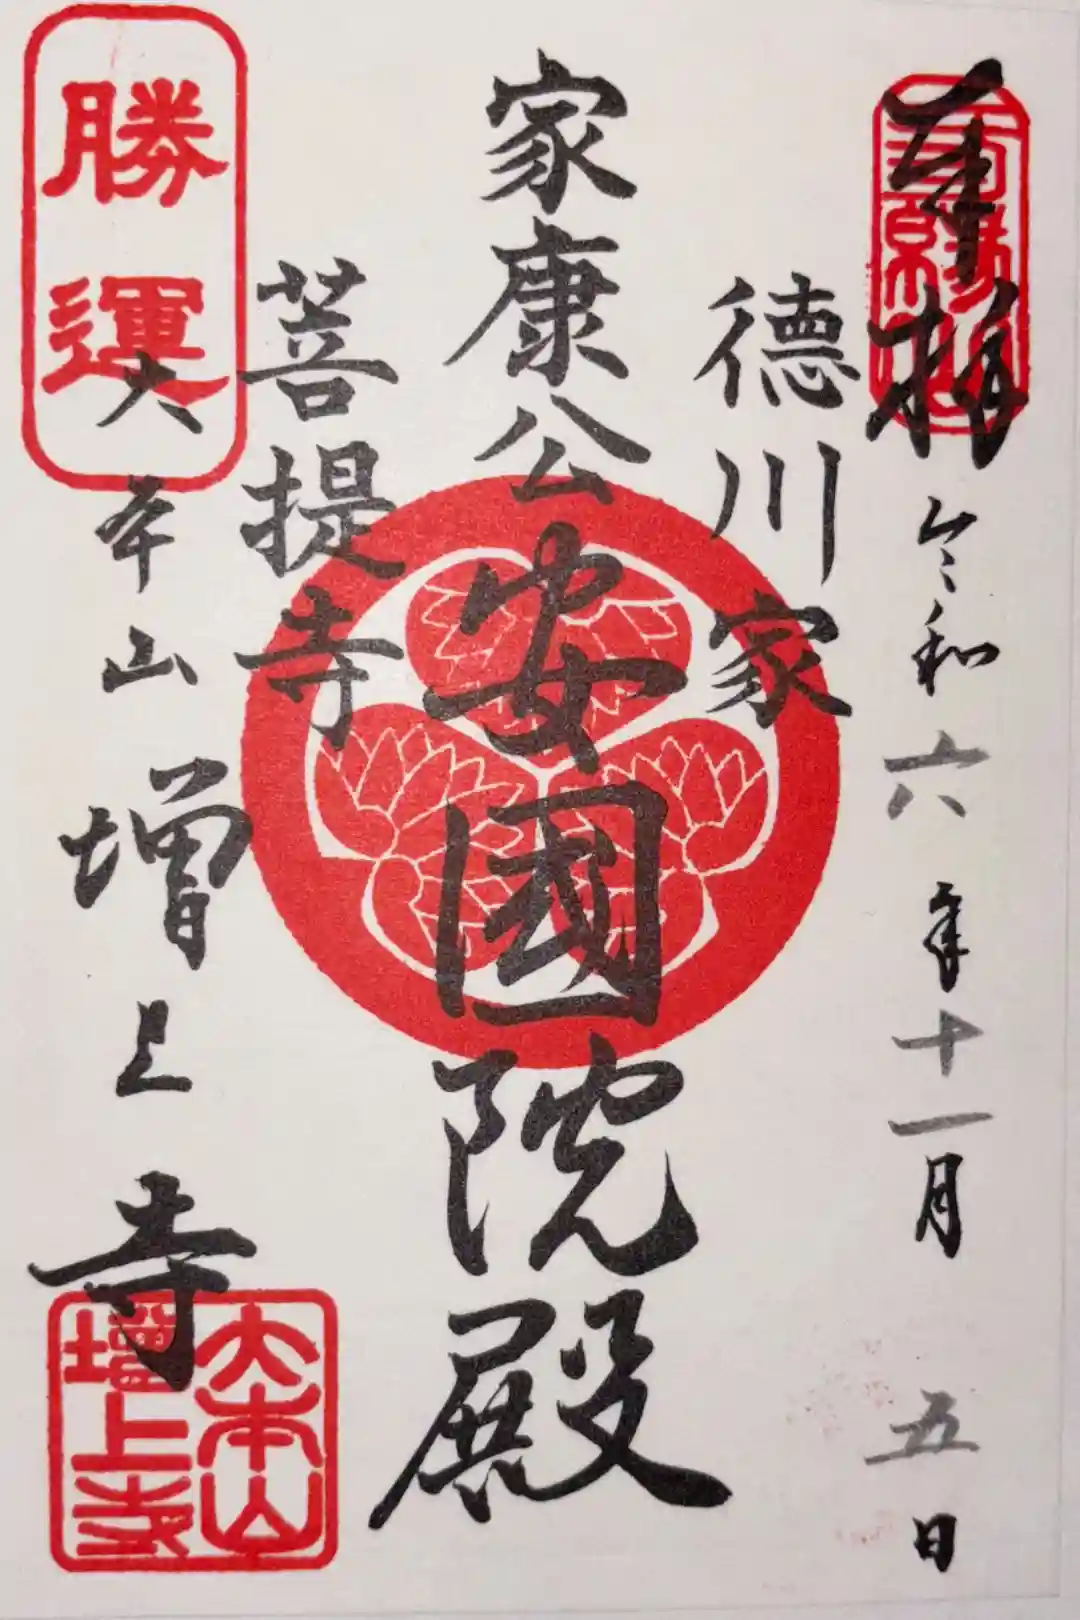 奉拝
令和六年十一月五日
徳川家
家康公
安國院殿
菩提寺
勝運
大本山
増上寺
大本山
増上寺